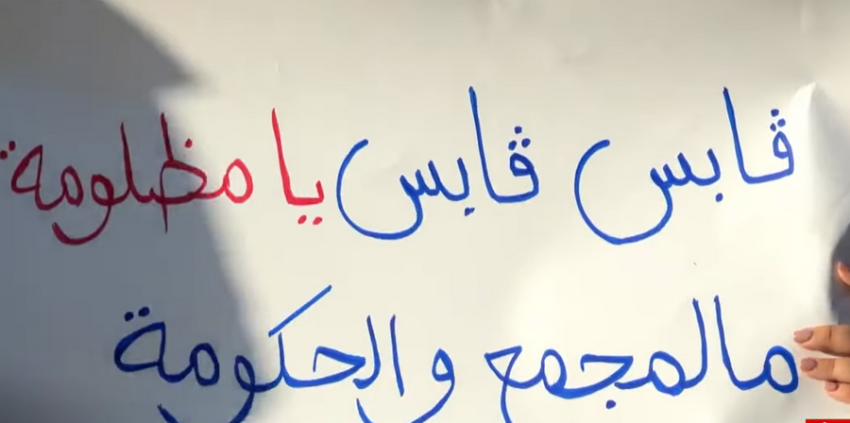 ڨابس ڨابس يا مظلومة
مالمجمع والحكومة